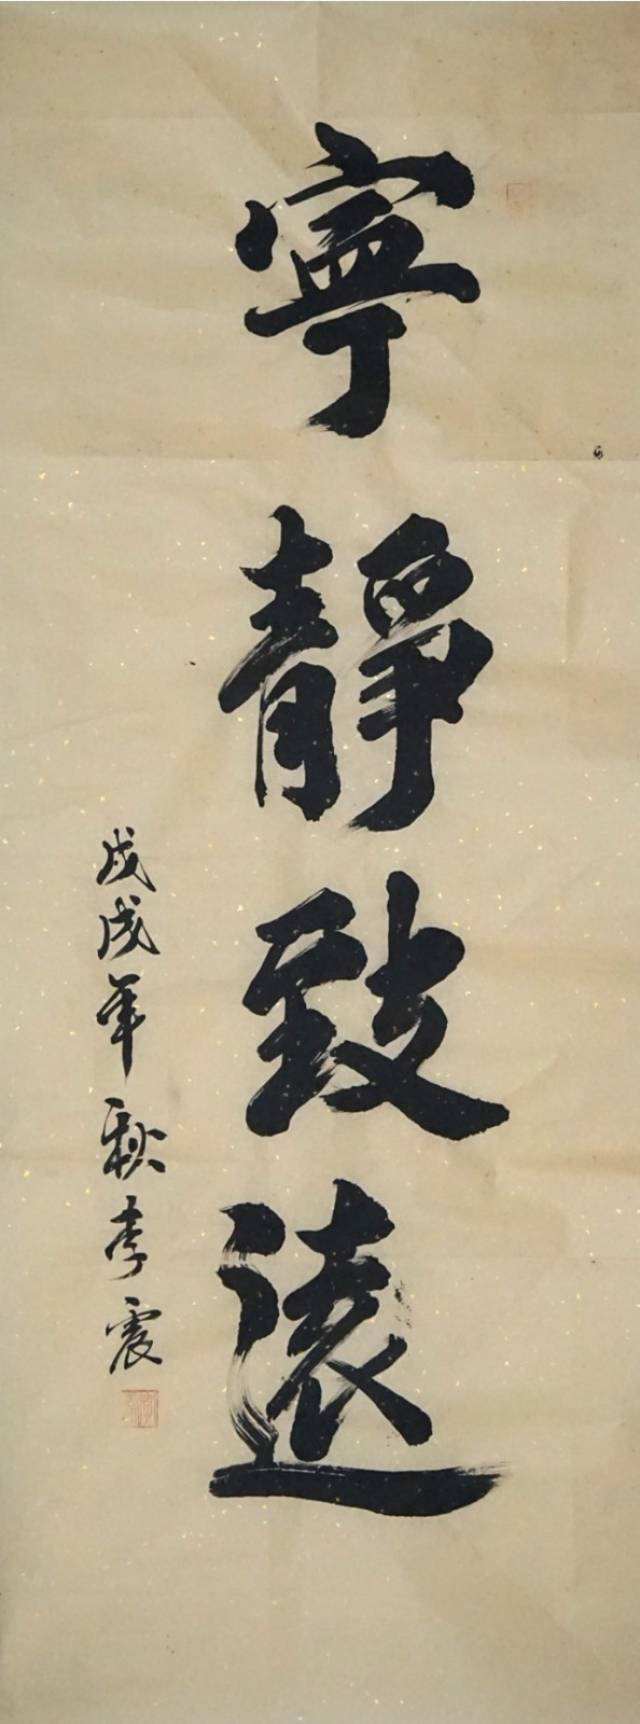 寧靜致遠
戊戌年秋李震